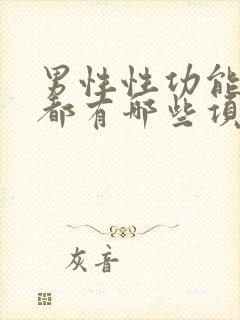 男性性功能
都有哪些项
灰音